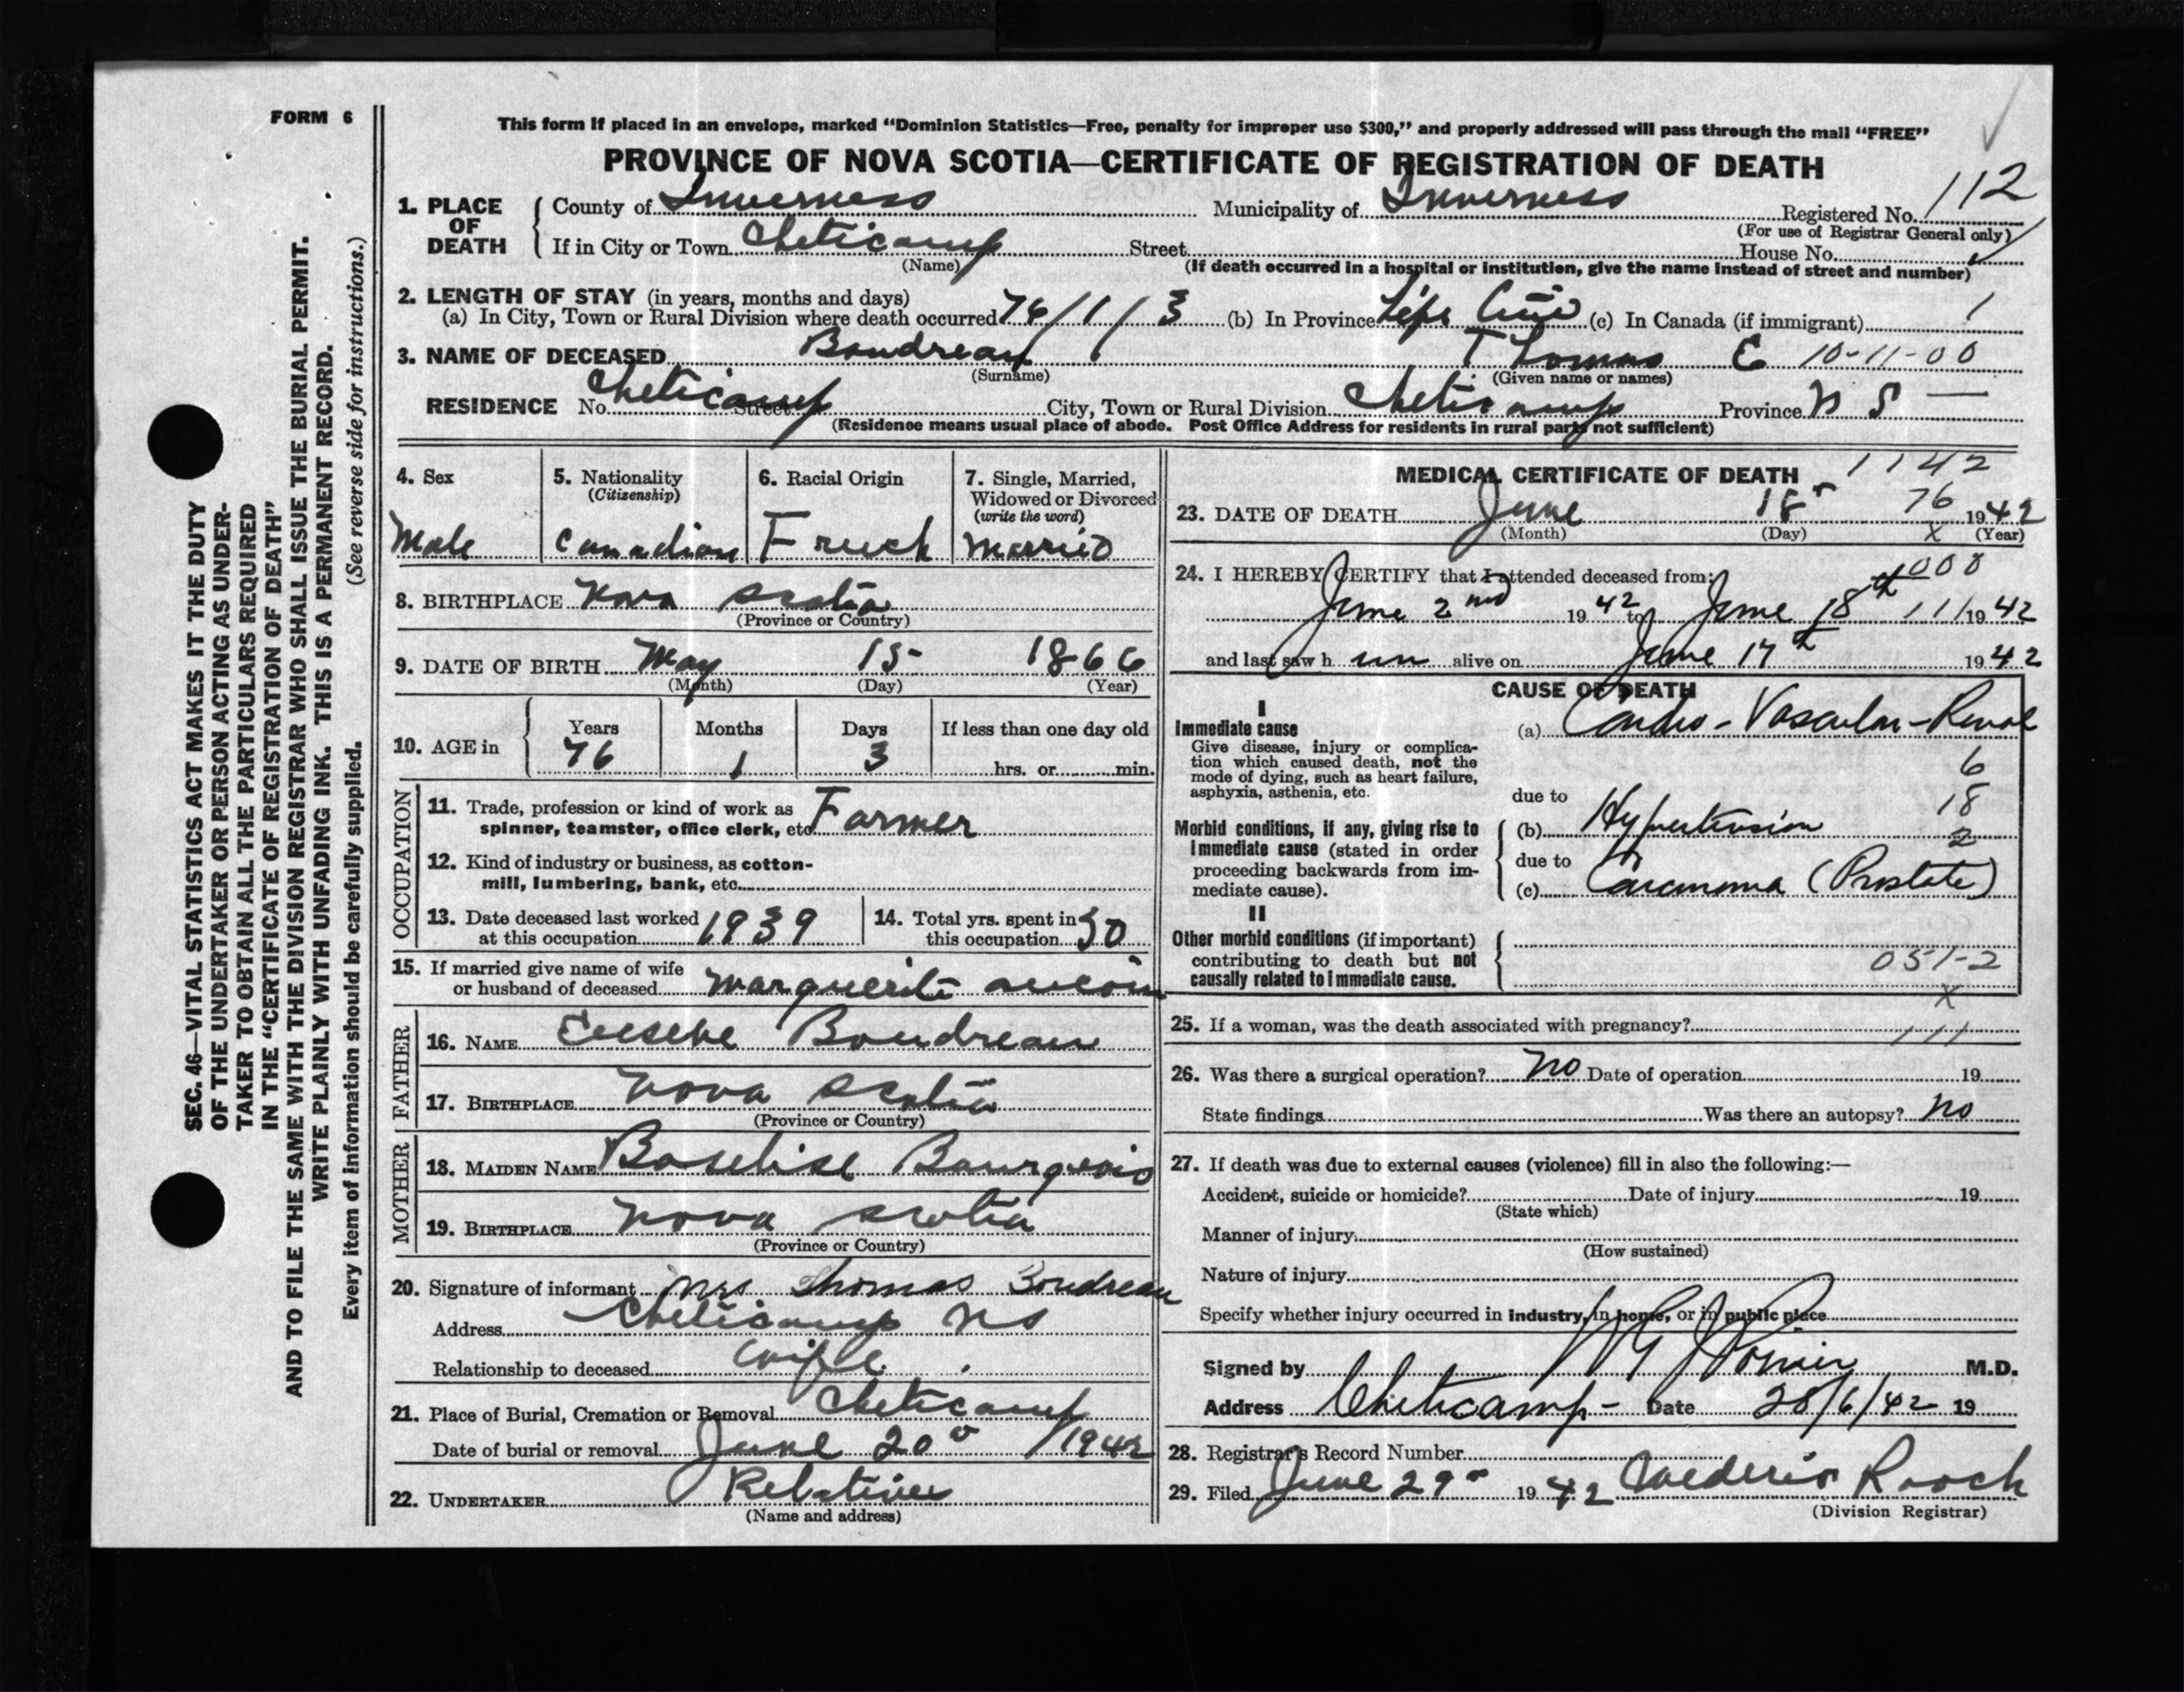 FORM 6
This form if placed in an envelope, marked “Dominion Statistics—Free, penalty for improper use $300,” and properly addressed will pass through the mail “FREE”
PROVINCE OF NOVA SCOTIA—CERTIFICATE OF REGISTRATION OF DEATH
112
1. PLACE OF DEATH { County of Inverness Municipality of Inverness Registered No.
(For use of Registrar General only)
If in City or Town Cheticamp Street House No.
(Name) (If death occurred in a hospital or institution, give the name instead of street and number)
2. LENGTH OF STAY (in years, months and days)
(a) In City, Town or Rural Division where death occurred 76/1/3 (b) In Province Life time (c) In Canada (if immigrant) 1
3. NAME OF DECEASED Boudreau Thomas E 10-11-00
(Surname) (Given name or names)
RESIDENCE No. Cheticamp Street City, Town or Rural Division Cheticamp Province N S —
(Residence means usual place of abode. Post Office Address for residents in rural parts not sufficient)
4. Sex
Male
5. Nationality
(Citizenship)
Canadian
6. Racial Origin
French
7. Single, Married,
Widowed or Divorced
(write the word)
Married
8. BIRTHPLACE Nova Scotia
(Province or Country)
9. DATE OF BIRTH May 15 1866
(Month) (Day) (Year)
10. AGE in { Years Months Days If less than one day old
76 1 3 hrs. or min.
OCCUPATION
11. Trade, profession or kind of work as
spinner, teamster, office clerk, etc. Farmer
12. Kind of industry or business, as cotton-
mill, lumbering, bank, etc.
13. Date deceased last worked
at this occupation 1939
14. Total yrs. spent in
this occupation 50
15. If married give name of wife
or husband of deceased Marguerite Aucoin
FATHER
16. NAME Eusebe Boudreau
17. BIRTHPLACE Nova Scotia
(Province or Country)
MOTHER
18. MAIDEN NAME Bourgeois
19. BIRTHPLACE Nova Scotia
(Province or Country)
20. Signature of informant Mrs Thomas Boudreau
Address Cheticamp NS
Relationship to deceased Wife
21. Place of Burial, Cremation or Removal Cheticamp
Date of burial or removal June 20 / 1942
22. UNDERTAKER Relatives
(Name and address)
MEDICAL CERTIFICATE OF DEATH 1142
76
23. DATE OF DEATH June 18 1942
(Month) (Day) X (Year)
24. I HEREBY CERTIFY that I attended deceased from: 000
June 2nd 1942 to June 18th 11/ 1942
and last saw h im alive on June 17th 1942
CAUSE OF DEATH
I
Immediate cause
Give disease, injury or complica-
tion which caused death, not the
mode of dying, such as heart failure,
asphyxia, asthenia, etc.
(a) Cardio-Vascular-Renal
6
18
2
due to
Morbid conditions, if any, giving rise to
immediate cause (stated in order
proceeding backwards from im-
mediate cause).
(b) Hypertension
due to
(c) Carcinoma (Prostate)
II
Other morbid conditions (if important)
contributing to death but not
causally related to immediate cause.
051-2
X
25. If a woman, was the death associated with pregnancy?
111
26. Was there a surgical operation? No Date of operation 19
State findings Was there an autopsy? No
27. If death was due to external causes (violence) fill in also the following:—
Accident, suicide or homicide? Date of injury 19
(State which)
Manner of injury
(How sustained)
Nature of injury
Specify whether injury occurred in industry, in home, or in public place
Signed by M.D.
Address Cheticamp- Date 28/6/42 19
28. Registrar's Record Number
29. Filed June 29 1942 Roach
(Division Registrar)
SEC. 46—VITAL STATISTICS ACT MAKES IT THE DUTY
OF THE UNDERTAKER OR PERSON ACTING AS UNDER-
TAKER TO OBTAIN ALL THE PARTICULARS REQUIRED
IN THE “CERTIFICATE OF REGISTRATION OF DEATH”
AND TO FILE THE SAME WITH THE DIVISION REGISTRAR WHO SHALL ISSUE THE BURIAL PERMIT.
WRITE PLAINLY WITH UNFADING INK. THIS IS A PERMANENT RECORD.
Every item of information should be carefully supplied. (See reverse side for instructions.)